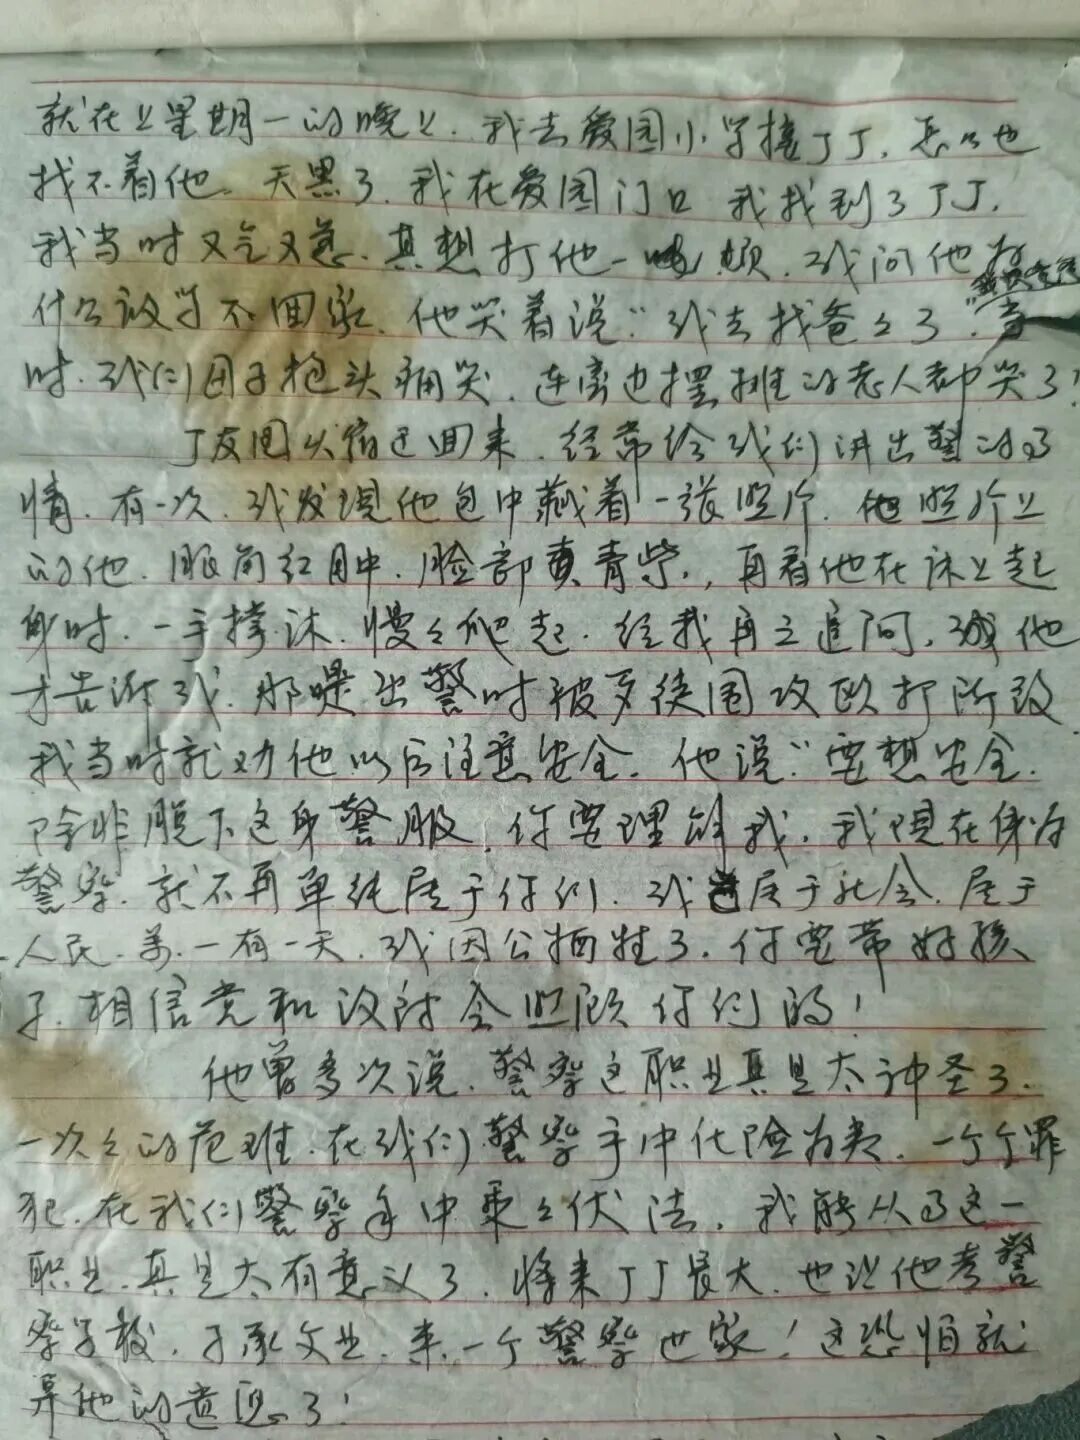 就在上星期一的晚上.我去爱园小学接丁丁,怎么也
找不着他.天黑了.我在爱园门口 我找到了丁丁.
我当时又气又急.真想打他一顿.我问他为
什么放学不回家.他哭着说:"我去找爸々了".
时.我们母子抱头痛哭.连旁边摆摊的老人都哭了!
丁友国以前每回来.经常给我们讲出警的事
情.有一次.我发现他包中藏着一张照片.照片上
的他.眼角红肿.脸部青紫.,再看他在床上起
身时.一手撑床.慢々爬起.经我再三追问.他
才告诉我.那是出警时被歹徒围攻殴打所致
我当时就劝他以后注意安全.他说:"要想安全.
除非脱下这身警服.你要理解我.我现在身为
警察.就不再单纯属于你们.我属于社会.属于
人民.万一有一天.我因公牺牲了.你要带好孩
子.相信党和政府会照顾你们的!
他曾多次说.警察这职业真是太神圣了.
一次々的危难.在我们警察手中化险为夷.一个个罪
犯.在我们警察手中乖々伏法.我能从事这一
职业.真是太有意义了.将来丁丁长大.也让他考警
察学校.子承父业.来一个警察世家!这恐怕就
算他的遗愿了!